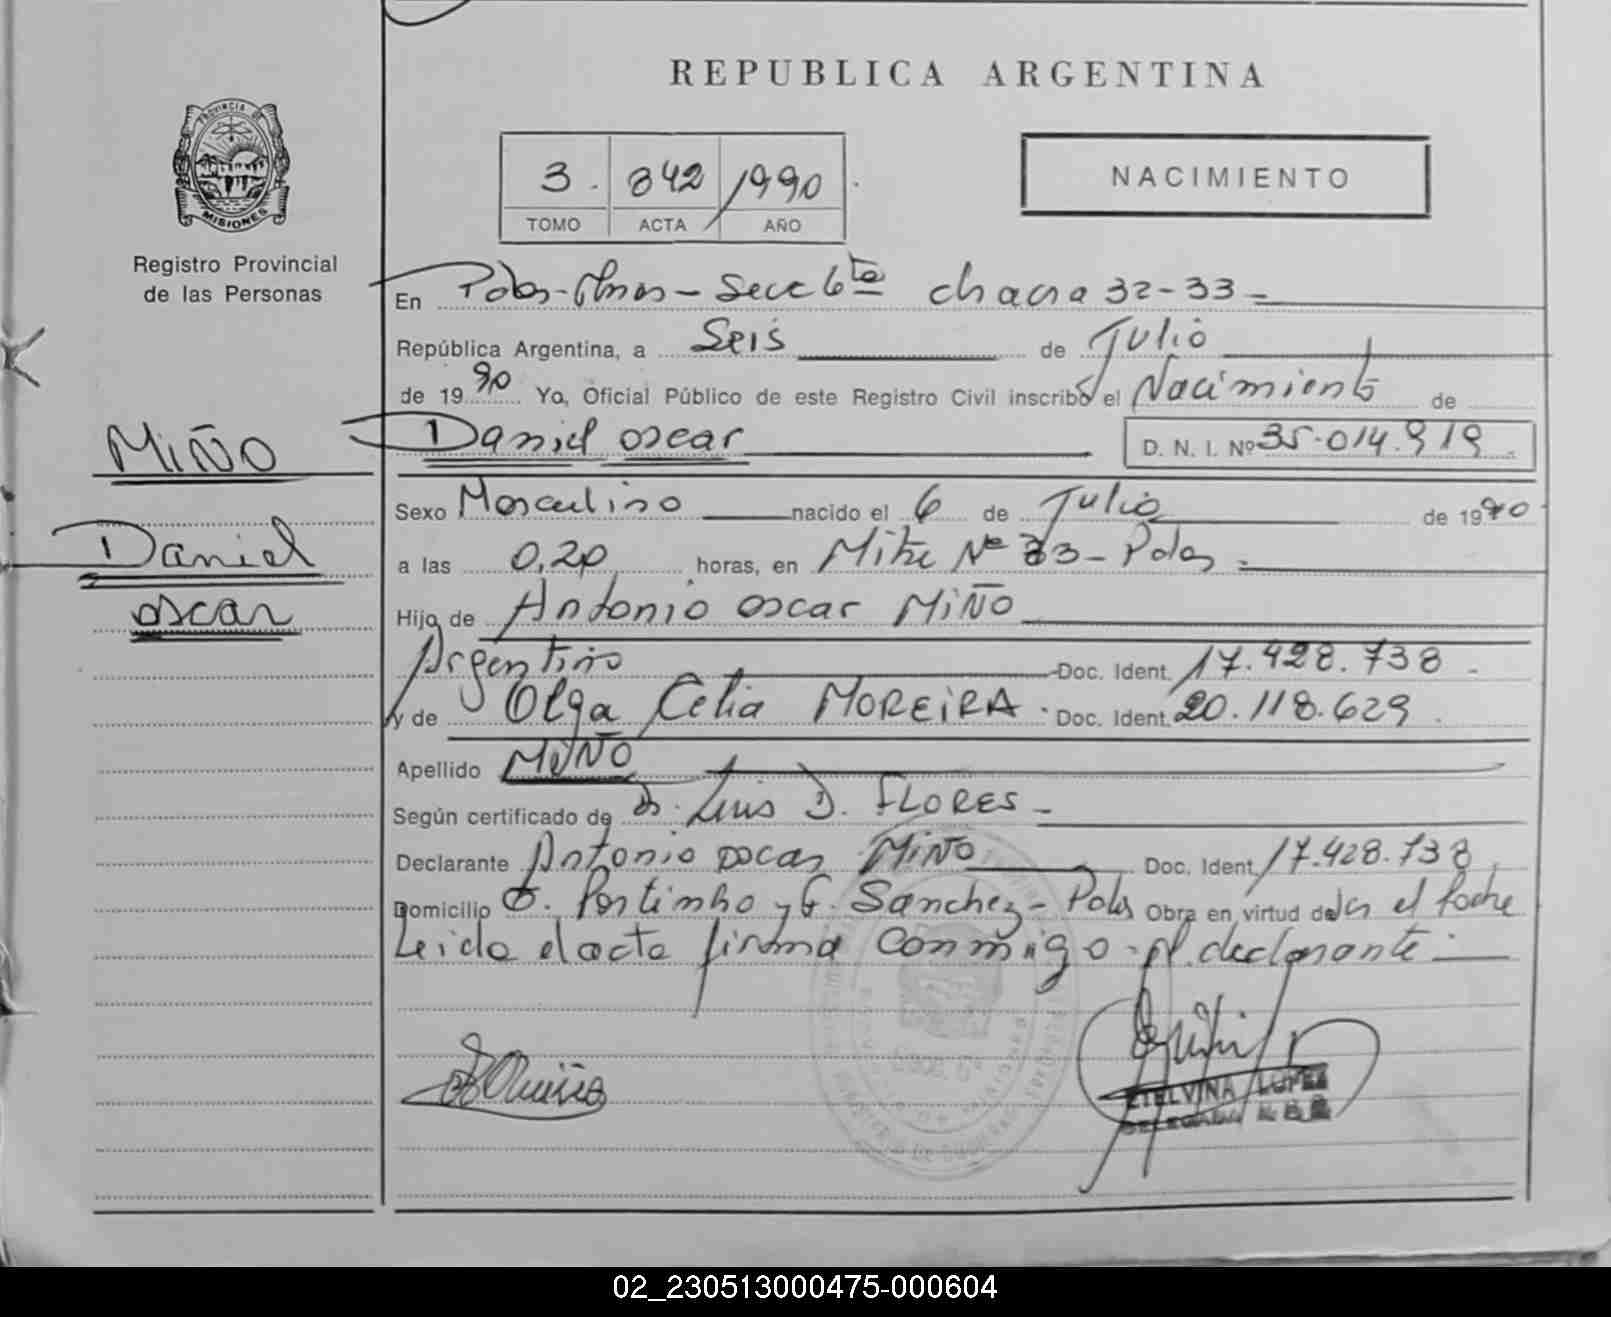 REPUBLICA ARGENTINA
PROVINCIA DE
MISIONES
Registro Provincial
de las Personas
3. 842 1990
TOMO ACTA AÑO
NACIMIENTO
En Pdas-Mnes-Secc 6ta chacra 32-33-
República Argentina, a Seis de Julio
de 1990 Yo, Oficial Público de este Registro Civil inscribo el Nacimiento de
MIÑO
Daniel oscar
D. N. I. Nº 35.014.919.
Sexo Masculino nacido el 6 de Julio de 1990
Daniel
a las 0,20 horas, en Mitre Nº 33-Pdas.
oscar
Hijo de Antonio oscar MIÑO
Argentino Doc. Ident. 17.428.738.
y de Olga Celia MOREIRA. Doc. Ident. 20.118.629.
Apellido MIÑO
Según certificado de Dr. Luis D. FLORES-
Declarante Antonio oscar MIÑO Doc. Ident. 17.428.738.
Domicilio Portinho y G. Sanchez-Pdas Obra en virtud de ser el Padre
Leida el acta firma conmigo el declarante.
ETELVINA LOPEZ
02_230513000475-000604